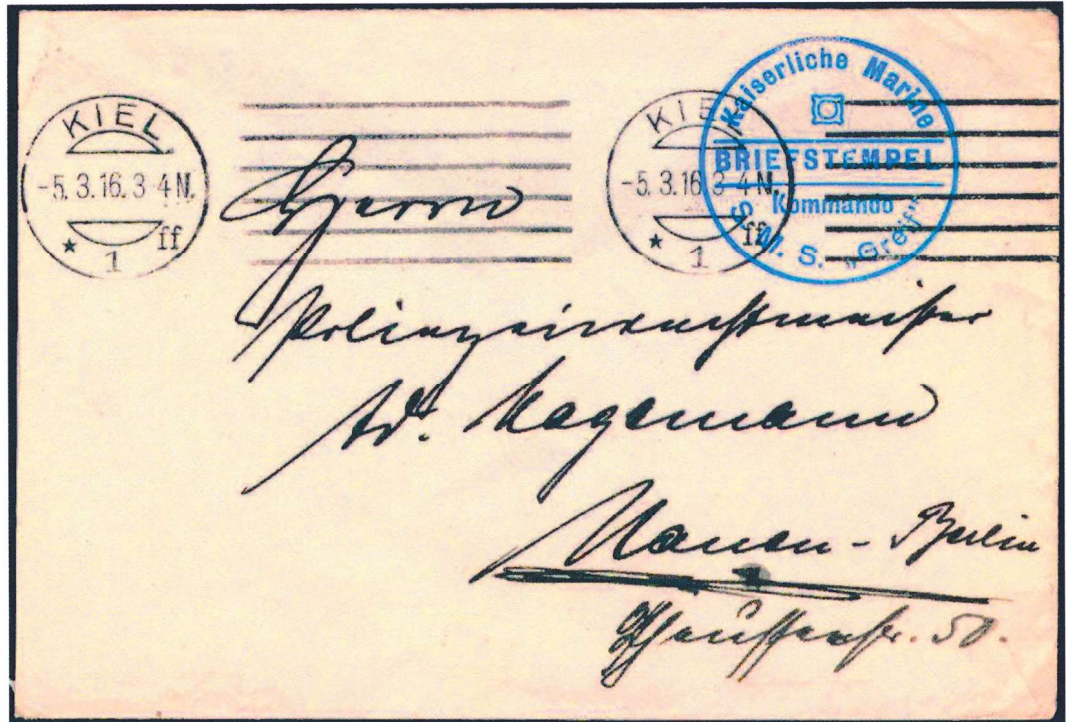 KIEL
-5. 3. 16. 3-4 N.
* 1 ff
KIEL
-5. 3. 16 3-4 N.
* 1 ff
Kaiserliche Marine
BRIEFSTEMPEL
Kommando
S. M. S. „Greif“
Herrn
Polizeiwachtmeister
Ad. Hagemann
Nauen - Berlin
50.